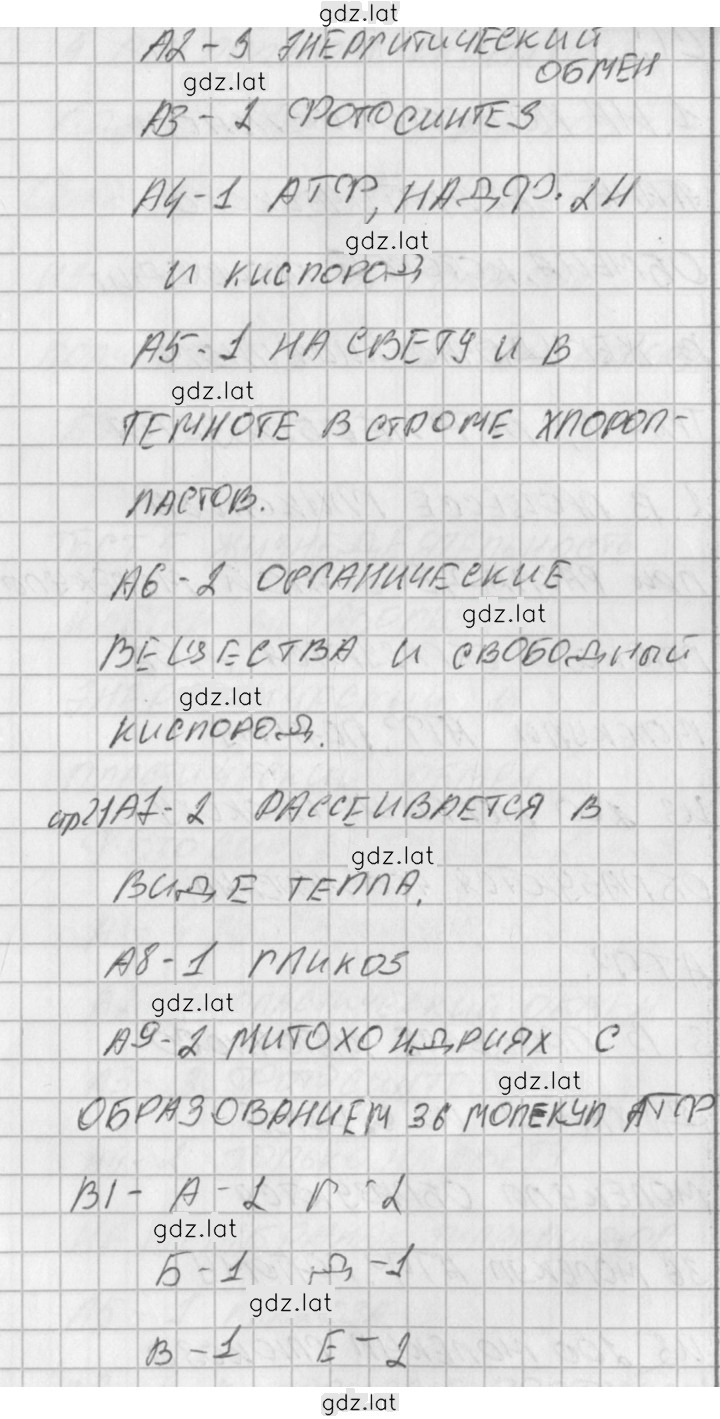 gdz.lat
А2-3 ЭНЕРГИТИЧЕСКИЙ
gdz.lat
ОБМЕН
А3-2 ФОТОСИНТЕЗ
А4-1 АТФ, НАДФ·2Н
gdz.lat
И КИСЛОРОД
А5-1 НА СВЕТУ И В
gdz.lat
ТЕМНОТЕ В СТРОМЕ ХЛОРОП-
ЛАСТОВ.
А6-2 ОРГАНИЧЕСКИЕ
gdz.lat
ВЕЩЕСТВА И СВОБОДНЫЙ
gdz.lat
КИСЛОРОД.
стр21 А7-2 РАССЕИВАЕТСЯ В
gdz.lat
ВИДЕ ТЕПЛА.
А8-1 ГЛИКОЗ
gdz.lat
А9-2 МИТОХОНДРИЯХ С
gdz.lat
ОБРАЗОВАНИЕМ 36 МОЛЕКУЛ АТФ
В1- А-2 Г-2
gdz.lat
Б-1 Д-1
gdz.lat
В-1 Е-2
gdz.lat